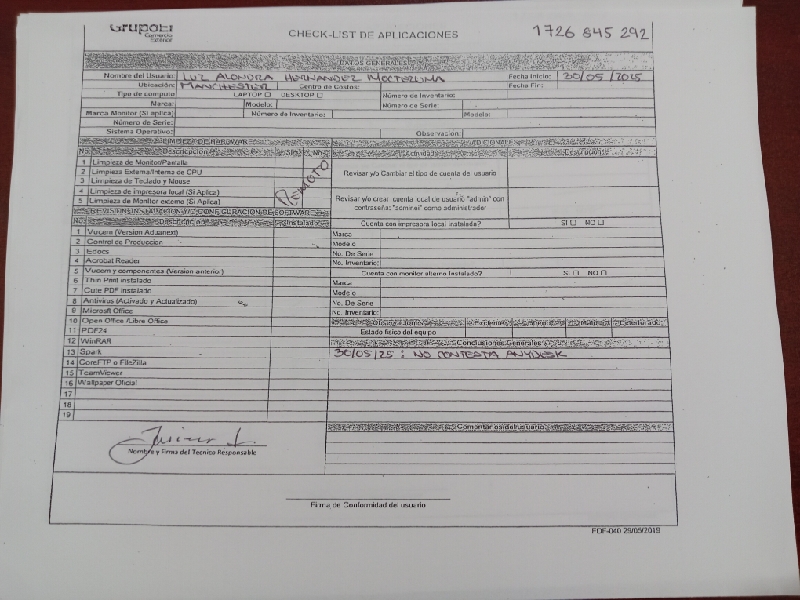 GrupoEI
Comercio Exterior
CHECK-LIST DE APLICACIONES
1726 845 292
DATOS GENERALES
Nombre del Usuario: LUZ ALONDRA HERNANDEZ MOCTEZUMA Fecha Inicio: 30/05/2025
Ubicación: MANCHESTER Centro de Costos: Fecha Fin:
Tipo de computo: LAPTOP DESKTOP Número de Inventario:
Marca: Modelo: Número de Serie:
Marca Monitor (Si aplica) Número de Inventario: Modelo:
Número de Serie:
Sistema Operativo: Observacion:
Descripción
1 Limpieza de Monitor/Pantalla
2 Limpieza Externa/Interna de CPU
3 Limpieza de Teclado y Mouse
4 Limpieza de impresora local (Si Aplica)
5 Limpieza de Monitor externo (Si Aplica)
REMOTO
Revisar y/o Cambiar el tipo de cuenta de usuario
Revisar y/o crear cuenta local de usuario "admin" con
como administrador
Cuenta con impresora local instalada? SI NO
1 Vucem (Version Actual)
2 Control de Produccion
3 Edocs
4 Acrobat Reader
5 Vucem y componentes (Version anterior)
6 Thin Print instalado
7 Cute PDF instalado
8 Antivirus (Activado y Actualizado)
9 Microsoft Office
10 Open Office /Libre Office
11 PDF24
12 WinRAR
13 Spark
14 CoreFTP o FileZilla
15 TeamViewer
16 Wallpaper Oficial
17
18
19
Marca
Modelo
No. De Serie
No. Inventario:
Cuenta con monitor alterno Instalado? SI NO
Marca
Modelo
No. De Serie
No. Inventario:
Estado fisico del equipo
Conclusiones Generales
30/05/25: NO CONTESTA ANYDESK
Comentarios del usuario
Nombre y Firma del Tecnico Responsable
Firma de Conformidad de usuario
FOF-040 29/05/2019